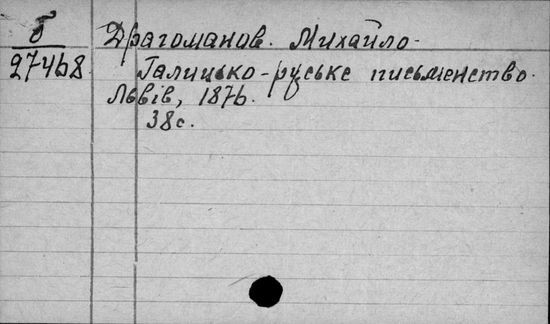 Б
27468
Драгоманов. Михайло.
Галицько-руське письменство.
Львів, 1876.
38с.